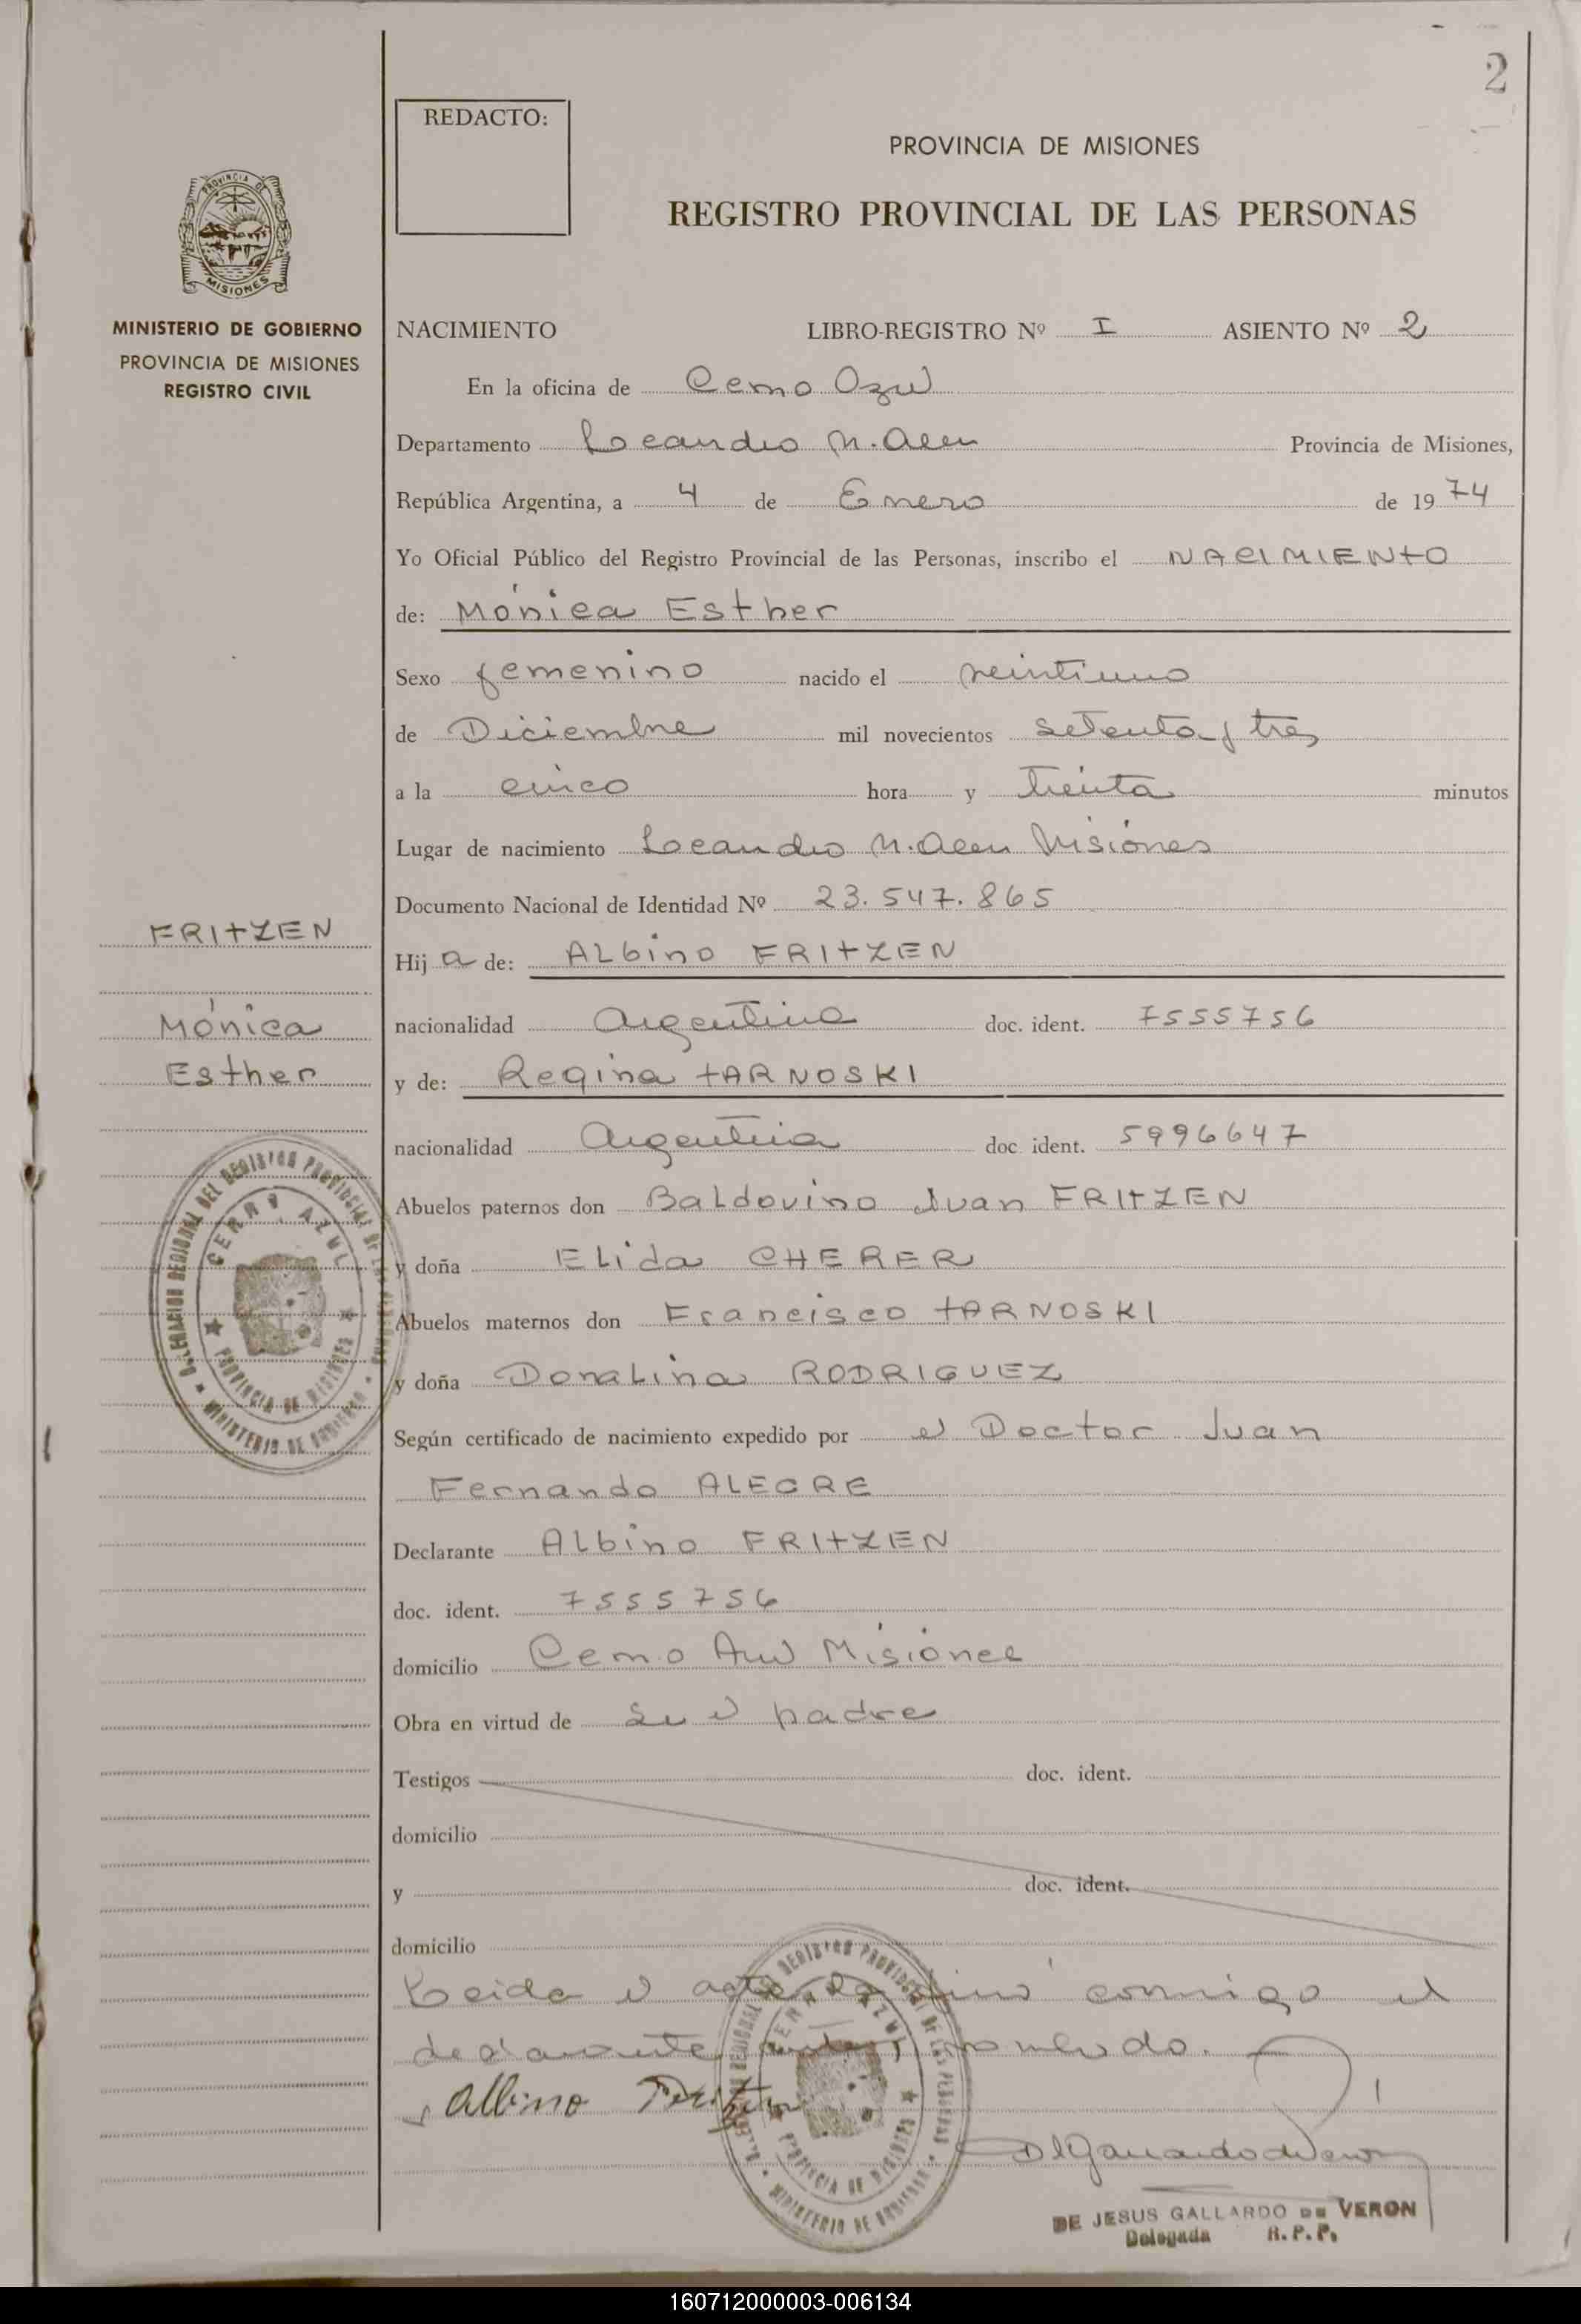 2
REDACTO:
PROVINCIA DE MISIONES
REGISTRO PROVINCIAL DE LAS PERSONAS
PROVINCIA DE
MISIONES
MINISTERIO DE GOBIERNO
PROVINCIA DE MISIONES
REGISTRO CIVIL
NACIMIENTO LIBRO-REGISTRO Nº I ASIENTO Nº 2
En la oficina de Cerro Azul
Departamento Leandro N. Alem Provincia de Misiones,
República Argentina, a 4 de Enero de 1974
Yo Oficial Público del Registro Provincial de las Personas, inscribo el NACIMIENTO
de: Mónica Esther
Sexo femenino nacido el veintiuno
de Diciembre mil novecientos setenta y tres
a la cinco hora y treinta minutos
Lugar de nacimiento Leandro N. Alem Misiones
Documento Nacional de Identidad Nº 23.547.865
FRITZEN
Mónica
Esther
Hij a de: ALbino FRITZEN
nacionalidad Argentina doc. ident. 7555756
y de: Regina TARNOSKI
nacionalidad Argentina doc ident. 5996647
Abuelos paternos don BaLdovino Juan FRITZEN
y doña ELida CHERER
Abuelos maternos don Francisco TARNOSKI
y doña DoraLina RODRIGUEZ
Según certificado de nacimiento expedido por el Doctor Juan
Fernando ALEGRE
Declarante ALbino FRITZEN
doc. ident. 7555756
domicilio Cerro Azul Misiones
Obra en virtud de ser el padre
Testigos doc. ident.
domicilio
y doc. ident.
domicilio
Leida el acta la firmó conmigo el
declarante
Albino Fritzen
DELEGACION REGIONAL DEL REGISTRO PROVINCIAL DE LAS PERSONAS
CERRO AZUL
PROVINCIA DE MISIONES
MINISTERIO DE GOBIERNO
DE JESUS GALLARDO DE VERON
Delegada R.P.P.
160712000003-006134